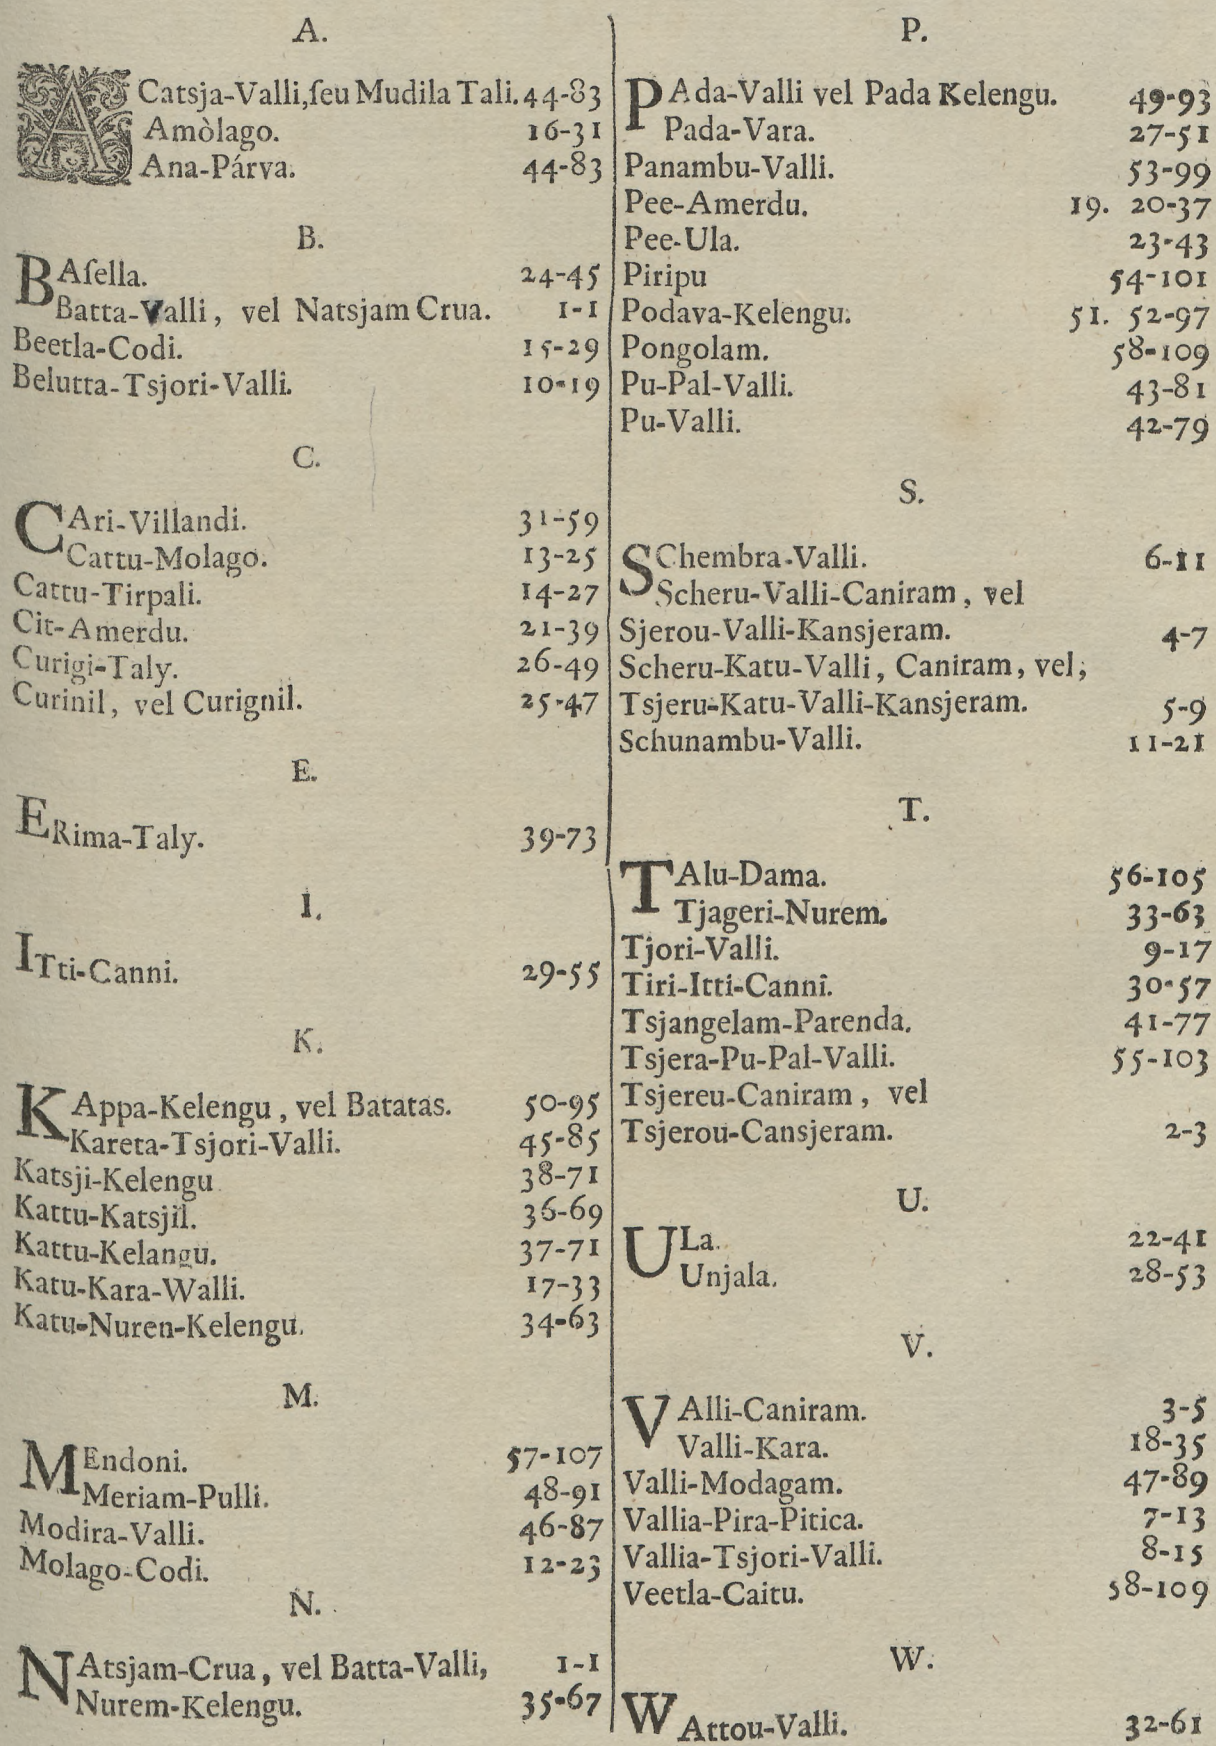 A.
ACatsja-Valli, ſeu Mudila Tali. 44-83
Amòlago. 16-31
Ana-Párva. 44-83
B.
BAſella. 24-45
Batta-Valli, vel Natsjam Crua. 1-1
Beetla-Codi. 15-29
Belutta-Tsjori-Valli. 10-19
C.
CAri-Villandi. 31-59
Cattu-Molago. 13-25
Cattu-Tirpali. 14-27
Cit-Amerdu. 21-39
Curigi-Taly. 26-49
Curinil, vel Curignil. 25-47
E.
ERima-Taly. 39-73
I.
ITti-Canni. 29-55
K.
KAppa-Kelengu, vel Batatas. 50-95
Kareta-Tsjori-Valli. 45-85
Katsji-Kelengu 38-71
Kattu-Katsjil. 36-69
Kattu-Kelangu. 37-71
Katu-Kara-Walli. 17-33
Katu-Nuren-Kelengu. 34-63
M.
MEndoni. 57-107
Meriam-Pulli. 48-91
Modira-Valli. 46-87
Molago-Codi. 12-23
N.
NAtsjam-Crua, vel Batta-Valli, 1-1
Nurem-Kelengu. 35-67
P.
PAda-Valli vel Pada Kelengu. 49-93
Pada-Vara. 27-51
Panambu-Valli. 53-99
Pee-Amerdu. 19. 20-37
Pee-Ula. 23-43
Piripu 54-101
Podava-Kelengu. 51. 52-97
Pongolam. 58-109
Pu-Pal-Valli. 43-81
Pu-Valli. 42-79
S.
SChembra-Valli. 6-11
Scheru-Valli-Caniram, vel
Sjerou-Valli-Kansjeram. 4-7
Scheru-Katu-Valli, Caniram, vel,
Tsjeru-Katu-Valli-Kansjeram. 5-9
Schunambu-Valli. 11-21
T.
TAlu-Dama. 56-105
Tjageri-Nurem. 33-63
Tjori-Valli. 9-17
Tiri-Itti-Canni. 30-57
Tsjangelam-Parenda. 41-77
Tsjera-Pu-Pal-Valli. 55-103
Tsjereu-Caniram, vel
Tsjerou-Cansjeram. 2-3
U.
ULa. 22-41
Unjala. 28-53
V.
VAlli-Caniram. 3-5
Valli-Kara. 18-35
Valli-Modagam. 47-89
Vallia-Pira-Pitica. 7-13
Vallia-Tsjori-Valli. 8-15
Veetla-Caitu. 58-109
W.
WAttou-Valli. 32-61